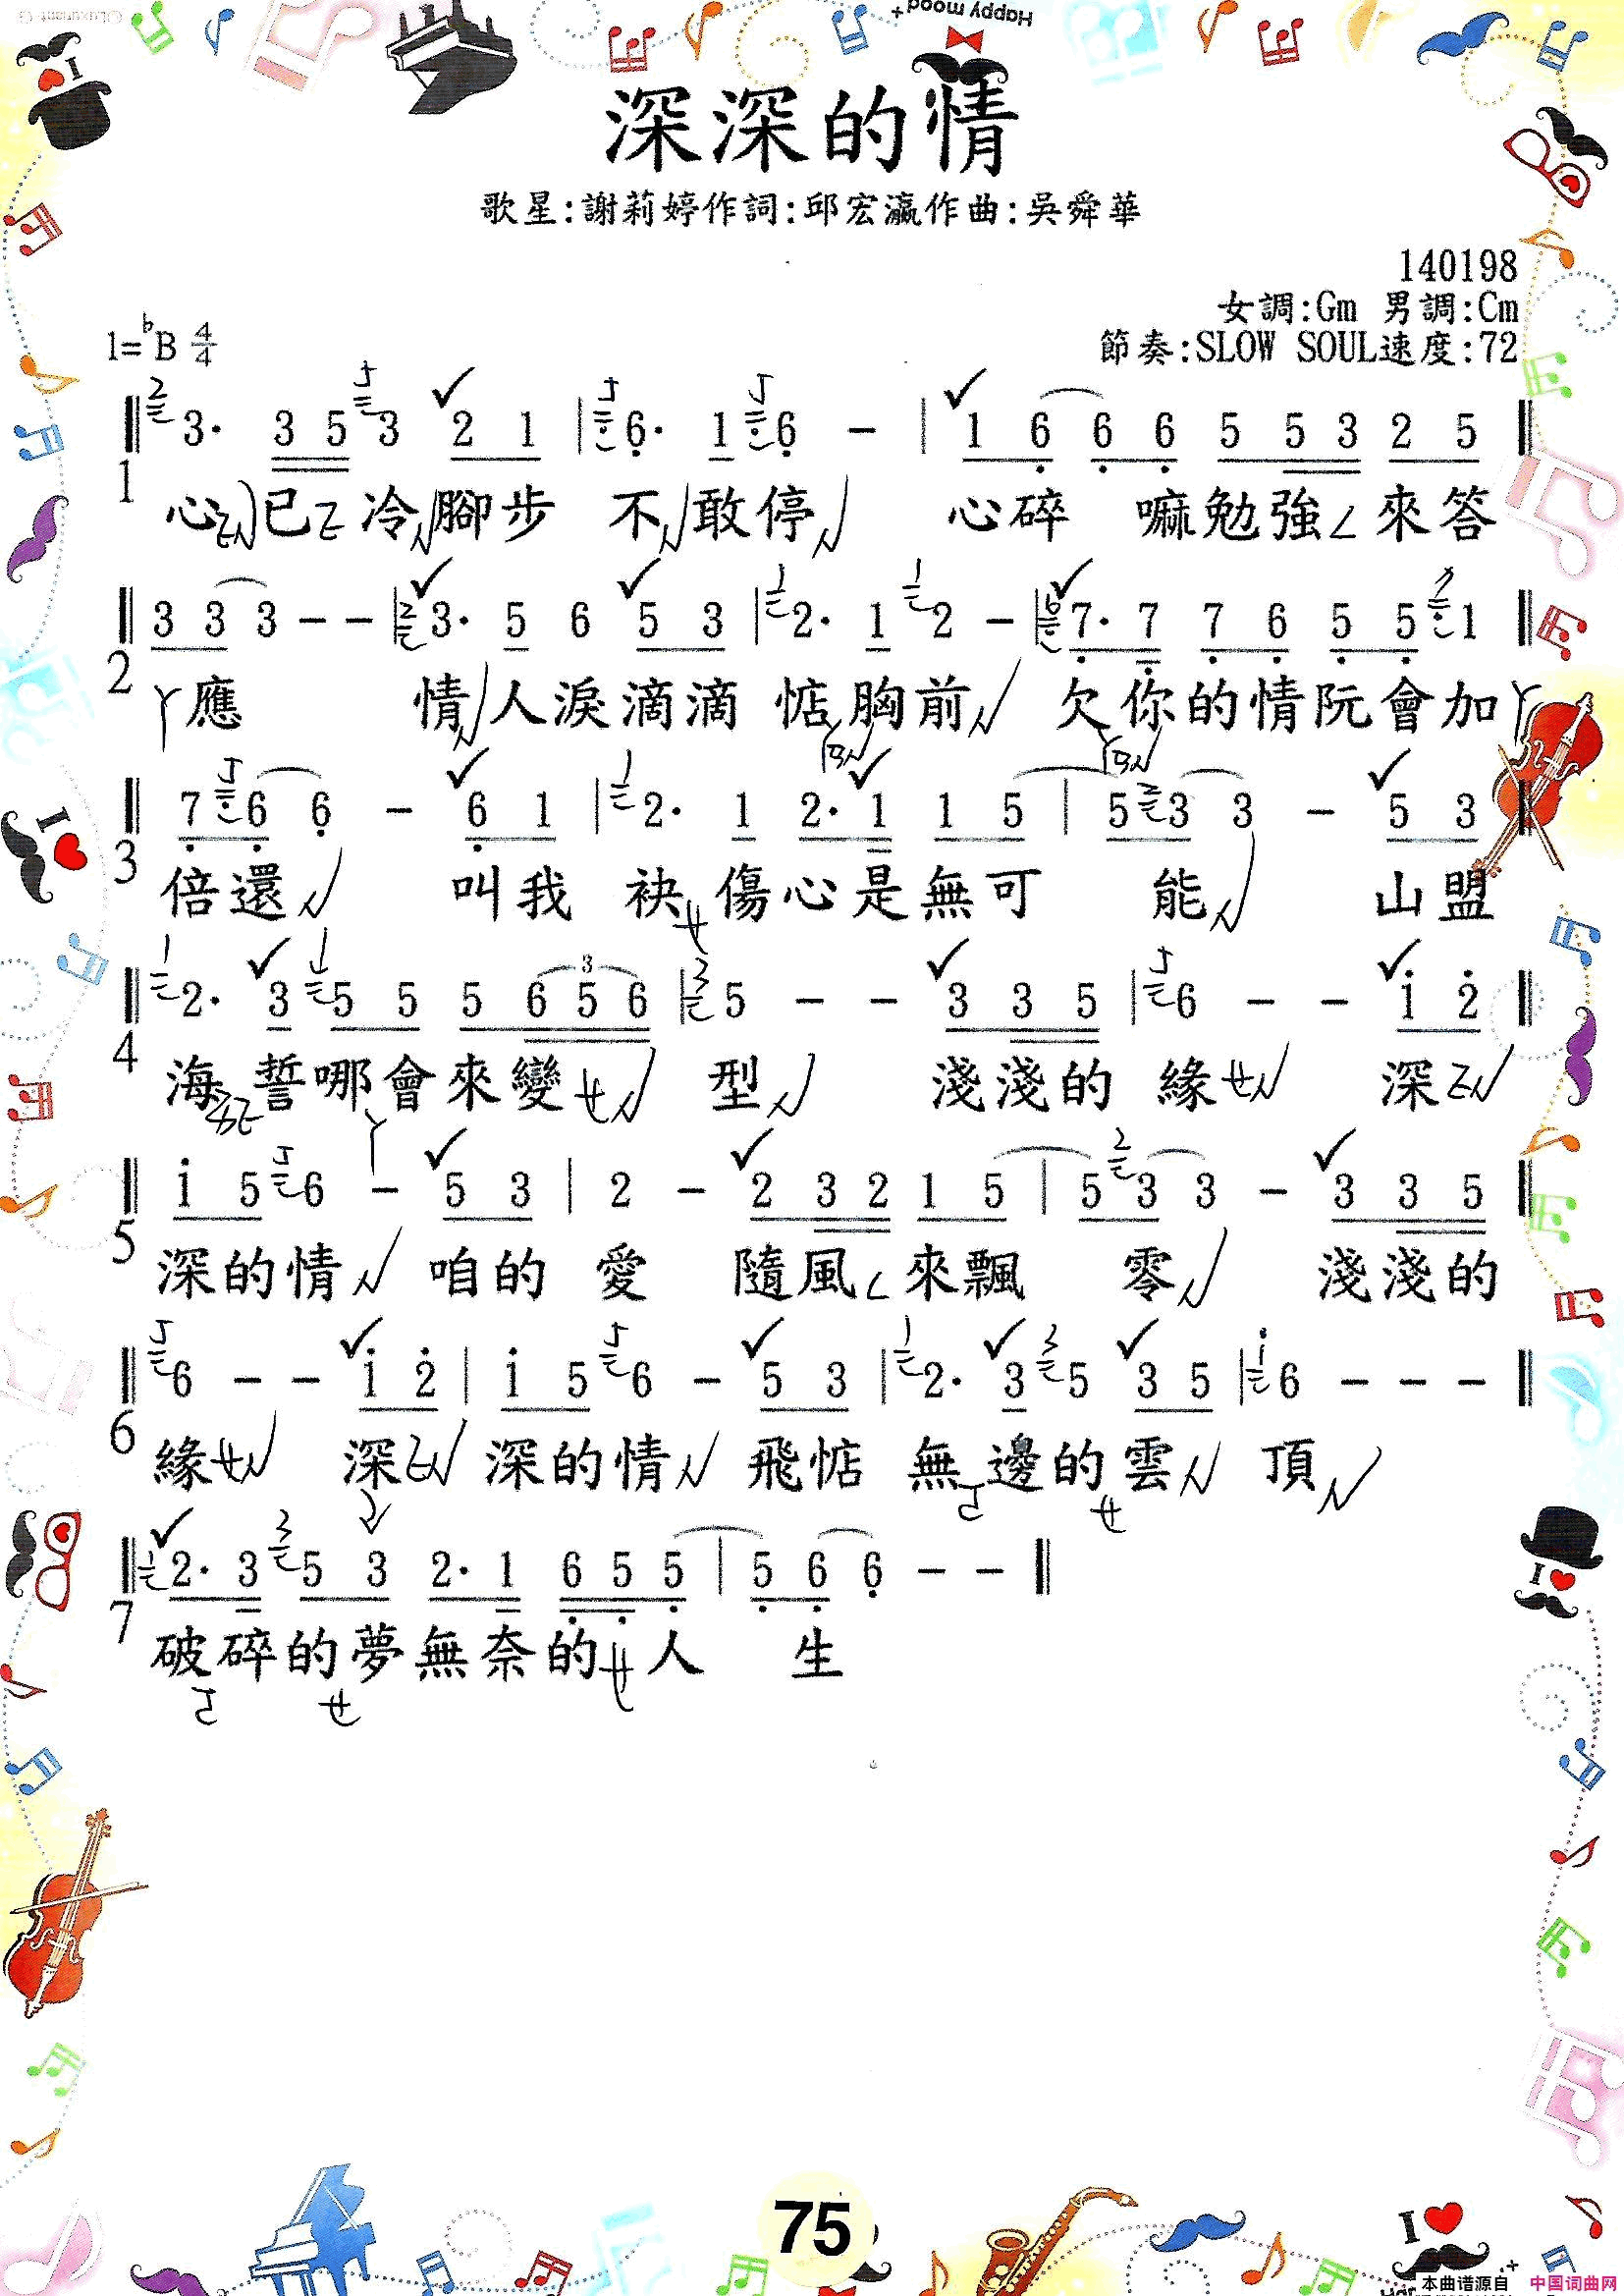 Happy mood+
深深的情
歌星:謝莉婷作詞:邱宏瀛作曲:吳舜華
140198
女調:Gm 男調:Cm
1=ᵇB 4/4
節奏:SLOW SOUL速度:72
3· 3 5 3 2 1 | 6· 1 6 - | 1 6 6 6 5 5 3 2 5
1
心已冷腳步 不敢停 心碎 嘛勉強來答
3 3 3 - - | 3· 5 6 5 3 | 2· 1 2 - | 7· 7 7 6 5 5 1
2
應 情人淚滴滴 惦胸前 欠你的情阮會加
7 6 6 - 6 1 | 2· 1 2· 1 1 5 | 5 3 3 - 5 3
3
倍還 叫我 袂傷心是無可 能 山盟
2· 3 5 5 5 6 5 6 | 5 - - 3 3 5 | 6 - - 1 2
4
海誓哪會來變 型 淺淺的 緣 深
1 5 6 - 5 3 | 2 - 2 3 2 1 5 | 5 3 3 - 3 3 5
5
深的情 咱的 愛 隨風來飄 零 淺淺的
6 - - 1 2 | 1 5 6 - 5 3 | 2· 3 5 3 5 | 6 - - -
6
緣 深 深的情 飛惦 無邊的雲 頂
2· 3 5 3 2· 1 6 5 5 | 5 6 6 - -
7
破碎的夢無奈的人 生
75
I
本曲谱源自 中国词曲网